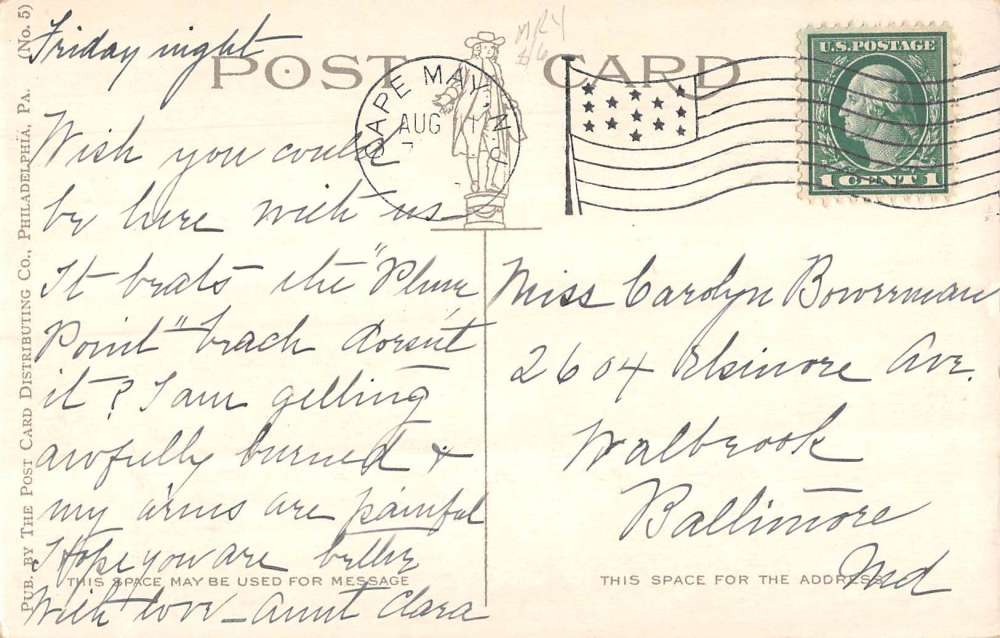 (No. 5)
PUB. BY THE POST CARD DISTRIBUTING CO., PHILADELPHIA, PA.
POST CARD
CAPE MAY N.J.
AUG
U.S. POSTAGE
1 CENT 1
Friday night
Wish you could
be here with us
It beats the "Plum
Point" beach doesn't
it? I am getting
awfully burned &
my arms are painful
Hope you are better
With love - Aunt Clara
THIS SPACE MAY BE USED FOR MESSAGE
Miss Carolyn Bowerman
2604 Elsinore Ave.
Walbrook
Baltimore
Md
THIS SPACE FOR THE ADDRESS